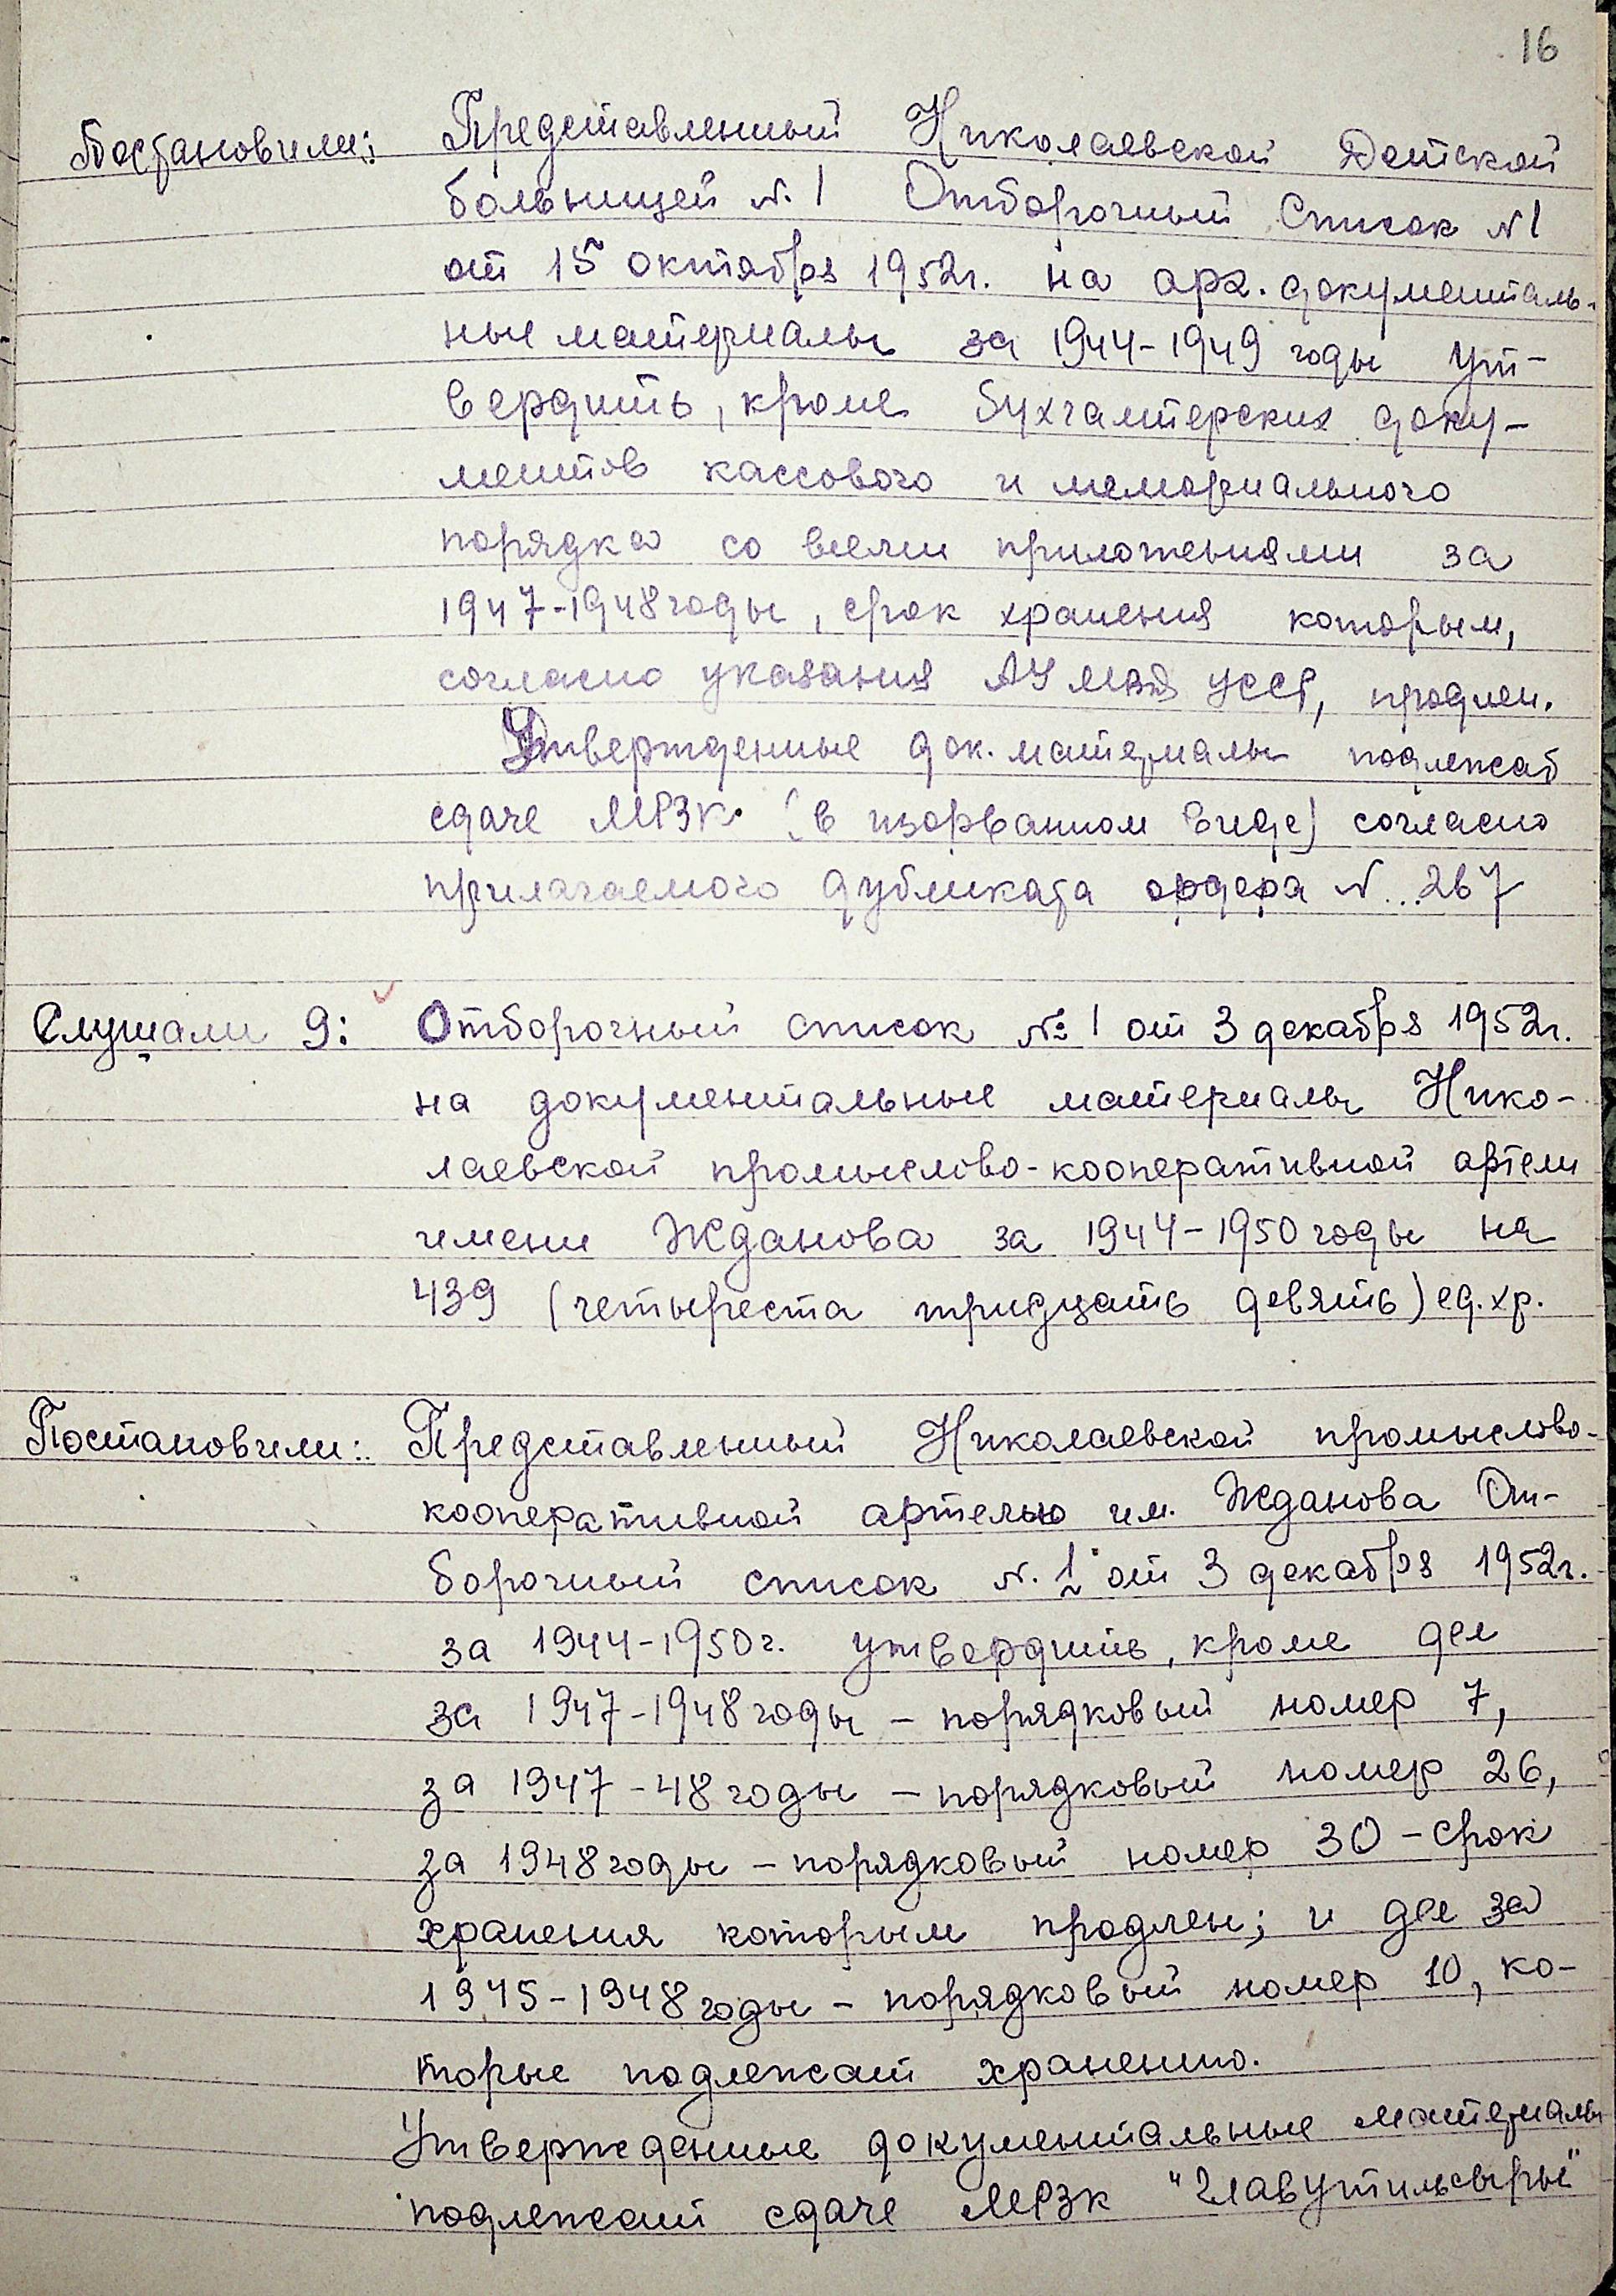 16
Постановили: Представленный Николаевской Детской
больницей №1 Отборочный Список №1
от 15 октября 1952г. на арх. документаль-
ные материалы за 1944-1949 годы ут-
вердить, кроме бухгалтерских доку-
ментов кассового и мемориального
порядка со всеми приложениями за
1947-1948 годы, срок хранения которым,
согласно указания АУ МВД УССР, продлен.
Утвержденные док. материалы подлежат
сдаче МРЗК (в изорванном виде) согласно
прилагаемого дубликата ордера №...267
Слушали 9: Отборочный список № 1 от 3 декабря 1952г.
на документальные материалы Нико-
лаевской промыслово-кооперативной артели
имени Жданова за 1944-1950 годы на
439 (четыреста тридцать девять) ед.хр.
Постановили: Представленный Николаевской промыслово-
кооперативной артелью им. Жданова От-
борочный список №. 1 от 3 декабря 1952г.
за 1944-1950г. утвердить, кроме дел
за 1947-1948 годы - порядковый номер 7,
за 1947-48 годы - порядковый номер 26,
за 1948 годы - порядковый номер 30 - срок
хранения которым продлен; и дел за
1945-1948 годы - порядковый номер 10, ко-
торые подлежат хранению.
Утвержденные документальные материалы
подлежат сдаче МРЗК "Главутильсырье"